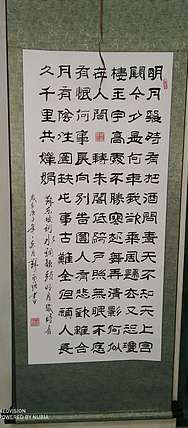 明月幾時有把酒問青天不知天上宮
闕今夕是何年我欲乘風歸去又恐瓊
樓玉宇高處不勝寒起舞弄清影何似
在人間轉朱閣低綺戶照無眠不應
有恨何事長向別時圓人有悲歡離合
月有陰晴圓缺此事古難全但願人長
久千里共嬋娟
蘇東坡詞水調歌頭明月幾時有
EOVISION
POWERED BY NUBIA